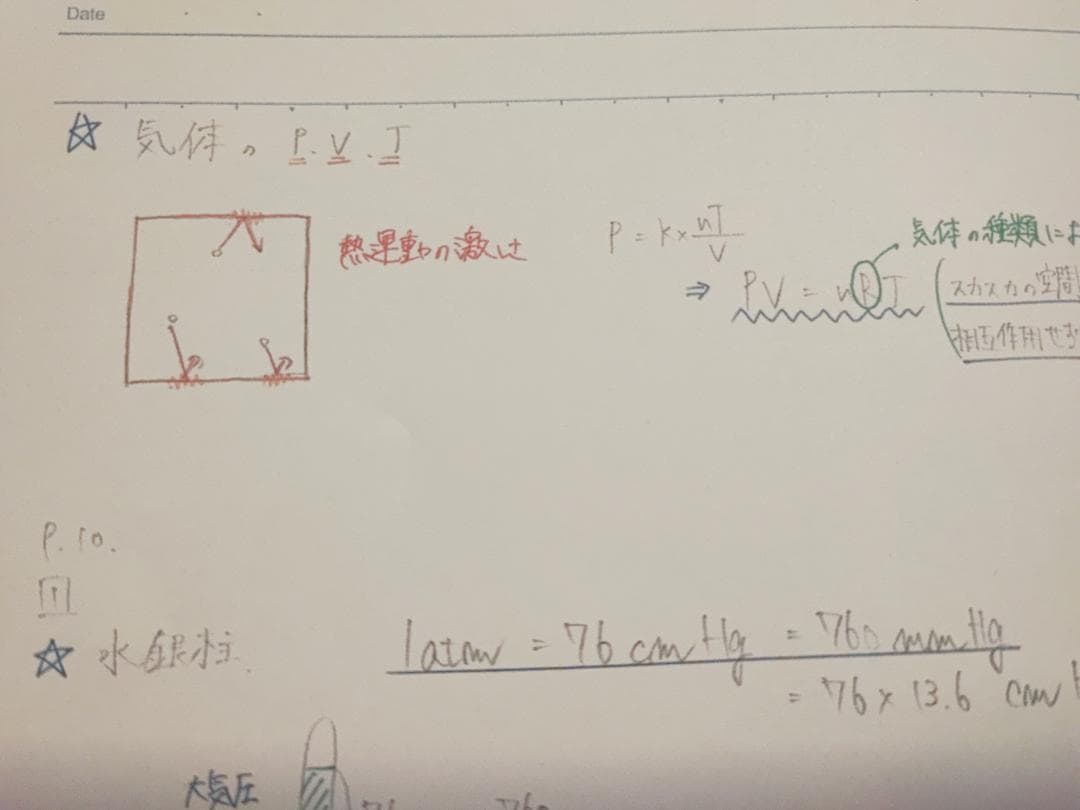 Date
☆ 気体の P.V.T
熱運動の激しさ
P = k × nT/V
⇒ PV = nRT
気体の種類に
スカスカの空間
相互作用せず
P.10.
1
☆ 水銀柱.
1atm = 76 cmHg = 760 mmHg
= 76 × 13.6 cm
大気圧
76
760